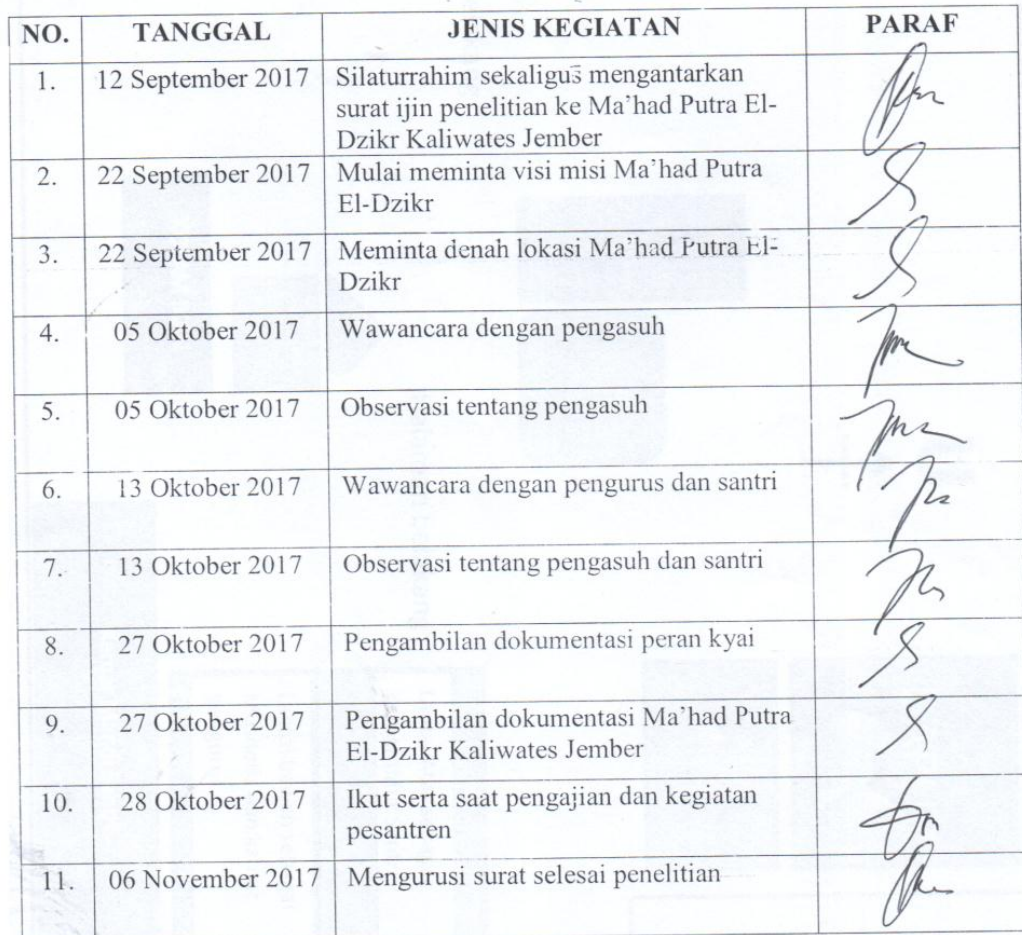 NO. TANGGAL JENIS KEGIATAN PARAF
1. 12 September 2017 Silaturrahim sekaligus mengantarkan
surat ijin penelitian ke Ma'had Putra El-
Dzikr Kaliwates Jember
2. 22 September 2017 Mulai meminta visi misi Ma'had Putra
El-Dzikr
3. 22 September 2017 Meminta denah lokasi Ma'had Putra El-
Dzikr
4. 05 Oktober 2017 Wawancara dengan pengasuh
5. 05 Oktober 2017 Observasi tentang pengasuh
6. 13 Oktober 2017 Wawancara dengan pengurus dan santri
7. 13 Oktober 2017 Observasi tentang pengasuh dan santri
8. 27 Oktober 2017 Pengambilan dokumentasi peran kyai
9. 27 Oktober 2017 Pengambilan dokumentasi Ma'had Putra
El-Dzikr Kaliwates Jember
10. 28 Oktober 2017 Ikut serta saat pengajian dan kegiatan
pesantren
11. 06 November 2017 Mengurusi surat selesai penelitian